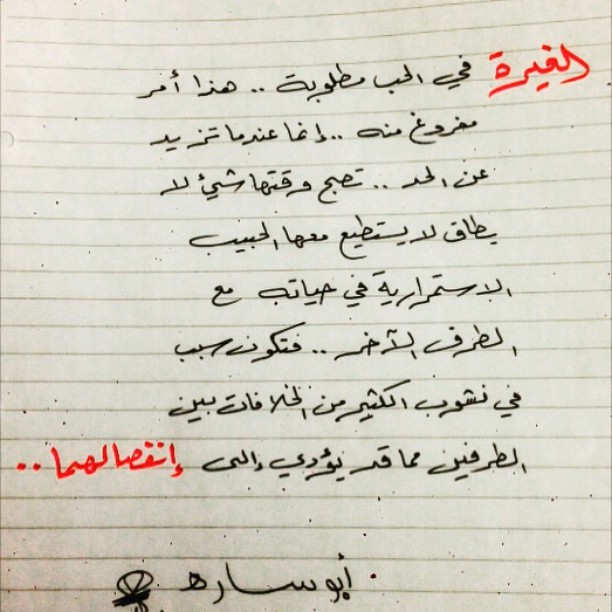 الغيرة في الحب مطلوبة .. هذا أمر
مفروغ منه .. إنما عندما تزيد
عن الحد .. تصبح وقتها شيئ لا
يطاق لا يستطيع معها الحبيب
الاستمرارية في حياته مع
الطرف الآخر .. فتكون سبب
في نشوب الكثير من الخلافات بين
الطرفين مما قد يؤدي إلى إنفصالهما ..
أبو ساره